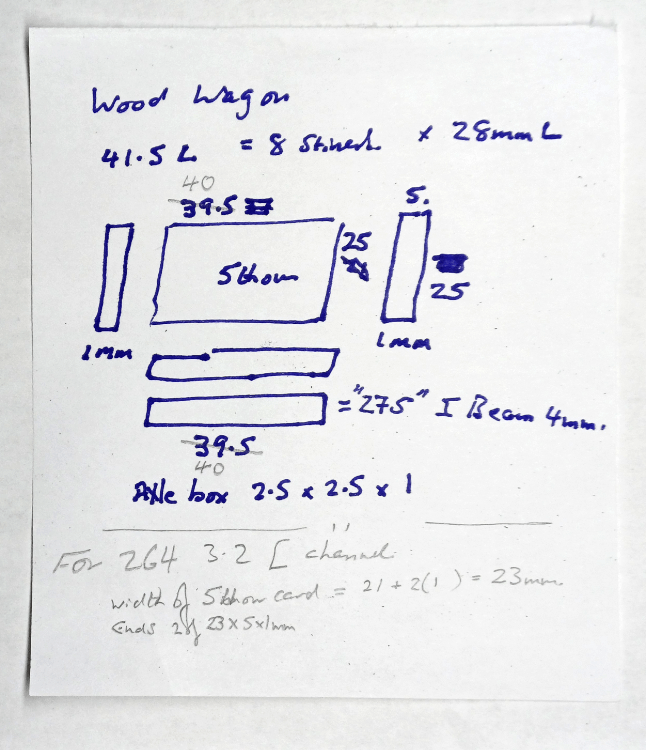 Wood Wagon
41.5 L = 8 × 28mm L
40
39.5
5.
25
5thou
25
1mm
1mm
= "275" I Beam 4mm.
39.5
40
Axle box 2.5 × 2.5 × 1
For 264 3.2 [ channel
width of 5thou card = 21 + 2(1) = 23mm
Ends 2 of 23×5×1mm